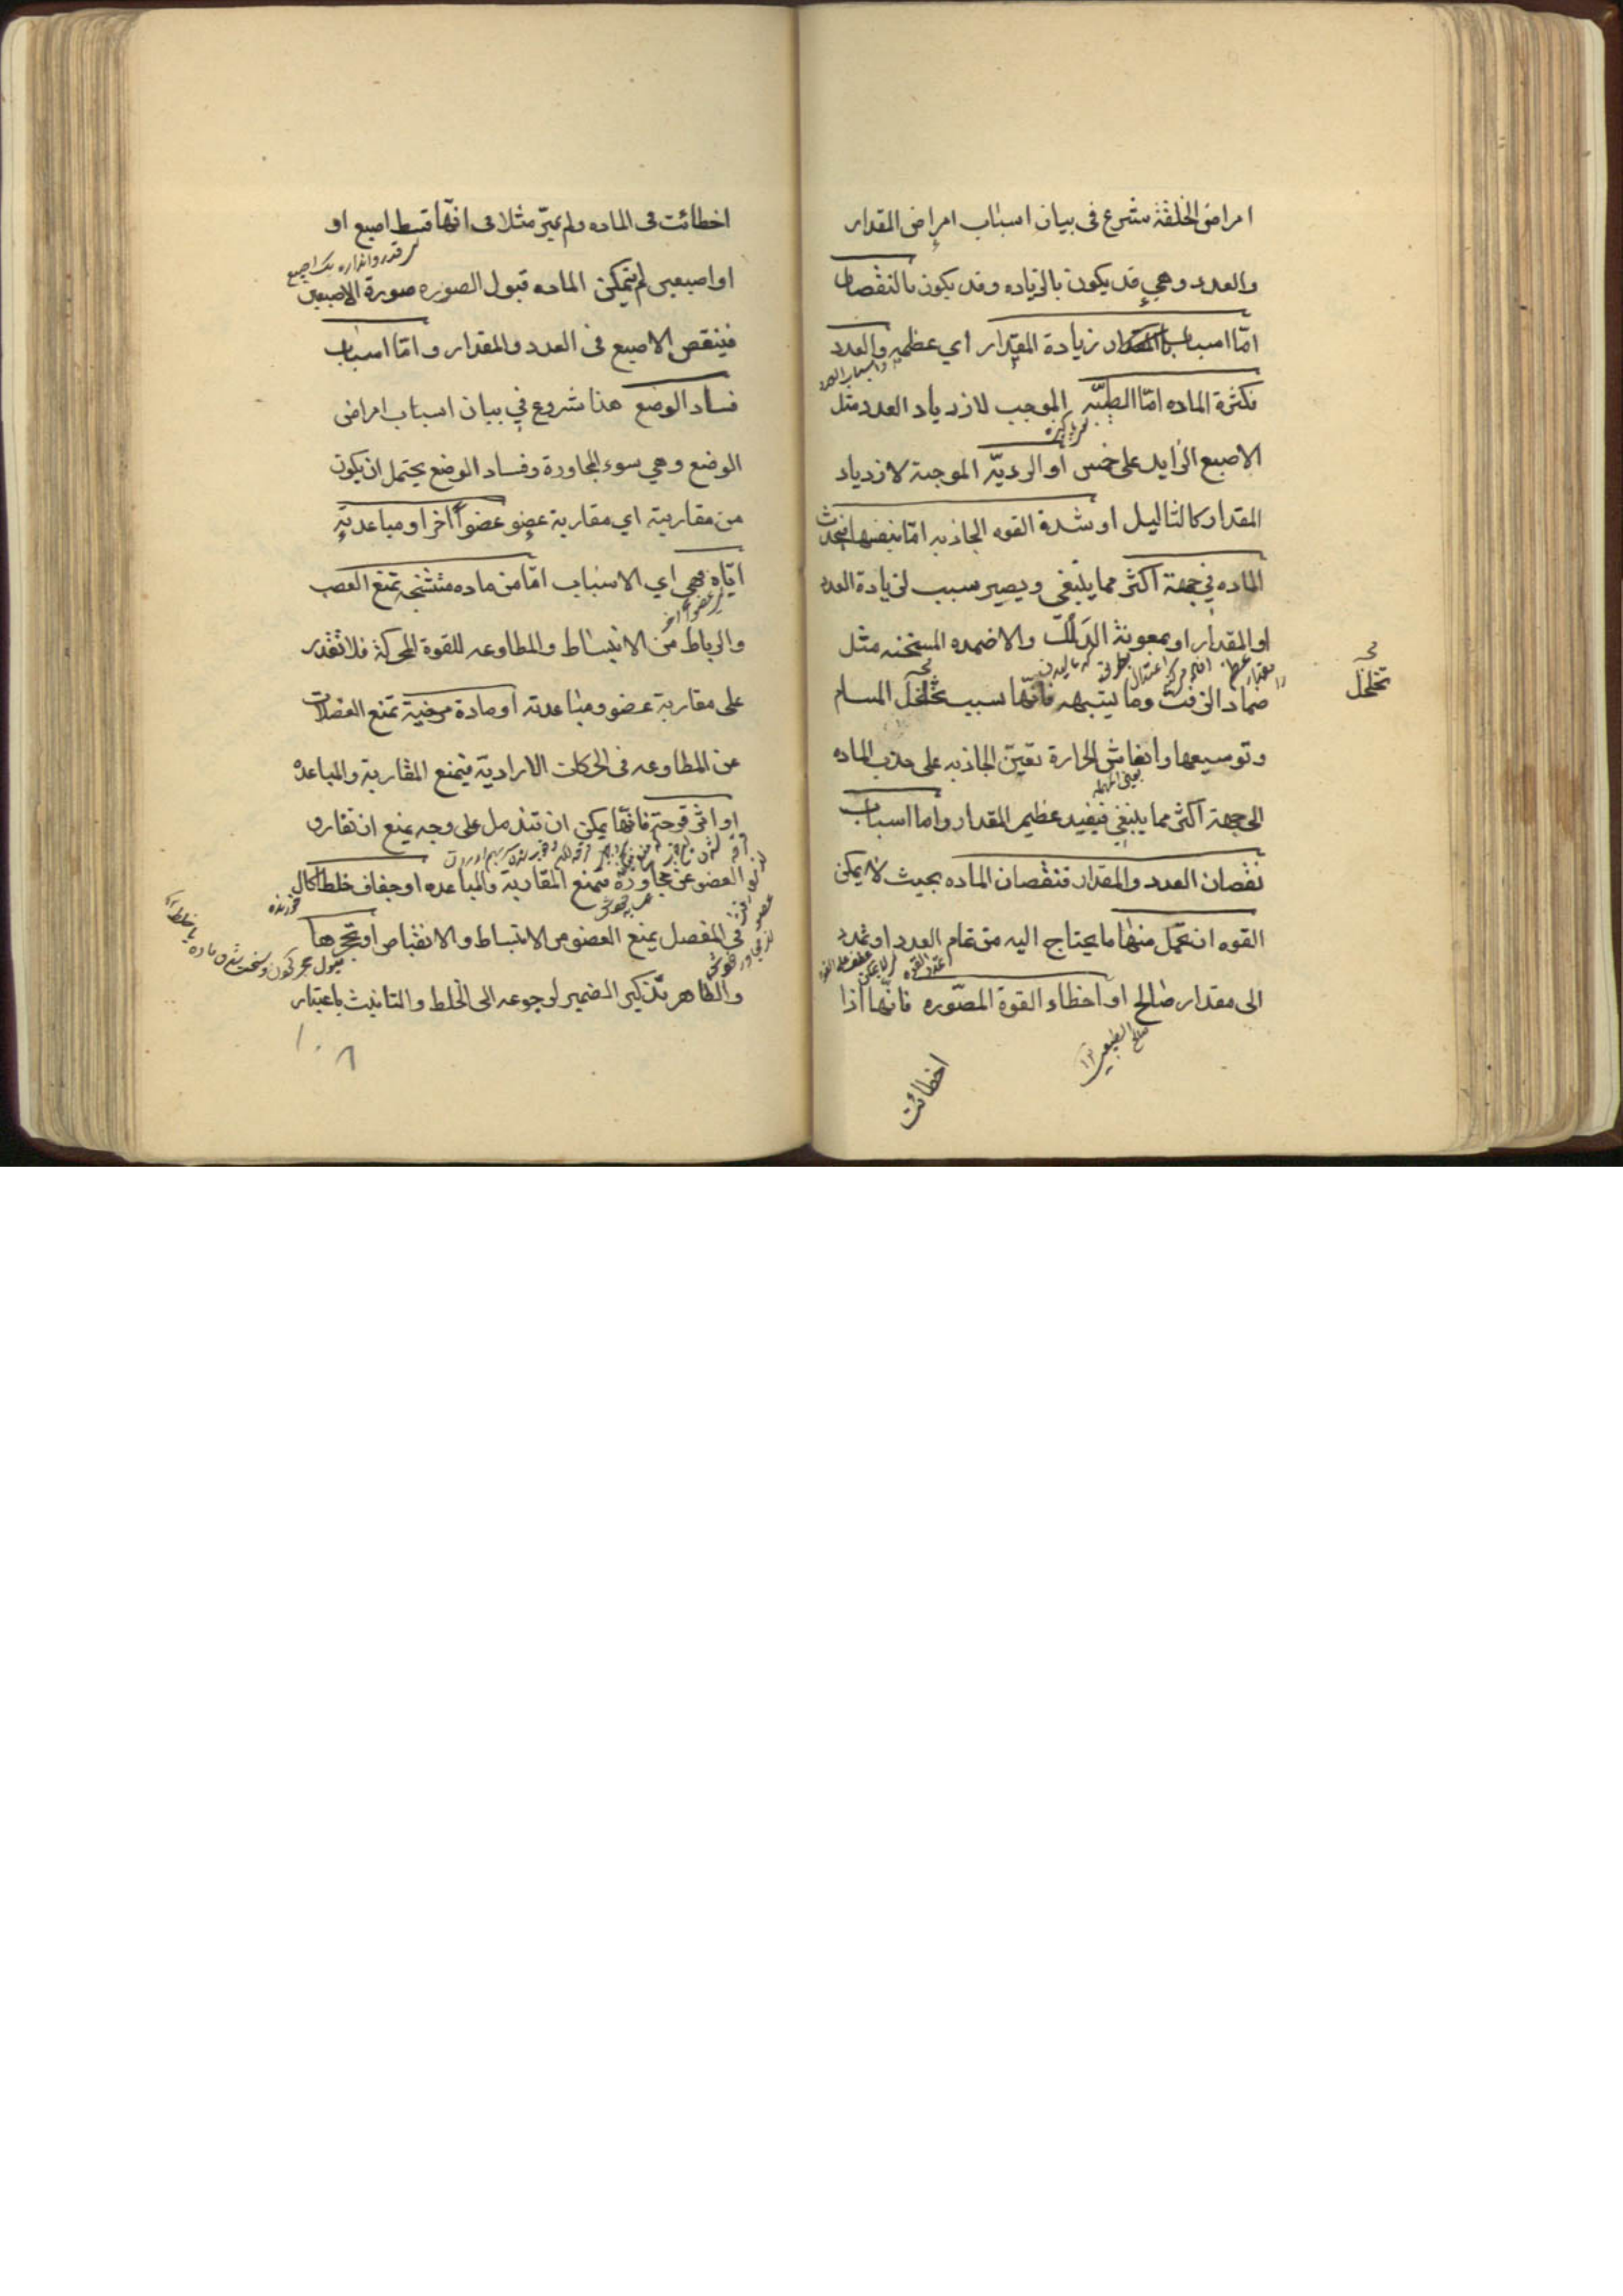 امراض الخلقة شرع فى بيان اسباب امراض المقدار
والعدد وهى قد يكون بالزياده وقد يكون بالنقصان
امّا اسباب زيادة المقدار اي عظمه والعدد
واسباب العدد
فكثرة الماده امّا الطيّبه الموجب لازدياد العدد مثل
الاصبع الزايد على خمس او الرديّه الموجبة لازدياد
المقدار كالثاليل او شدة القوه الجاذبه امّا بنفسها فيحدث
الماده في جهة اكثر مما ينبغى ويصير سبب لزيادة العدد
او المقدار او بمعونة الدلك والاضمده المسخنه مثل
ضماد الزفت وما يشبهه فانّها سبب تخلخل المسام
تخلخل
وتوسيعها وانعاش الحرارة تعين الجاذبه على جذب الماده
الى جهة اكثر مما ينبغي فيفيد عظيم المقدار واما اسباب
نقصان العدد والمقدار فنقصان الماده بحيث لا يمكن
القوه ان تحمّل منها ما يحتاج اليه من تمام العدد او تمدد
الى مقدار صالح او اخطاء القوة المصّوره فانّها اذا
اخطائت
اخطائت فى الماده ولم يميّز مثلا فى انّها قسط اصبع او
او اصبعين لم يتمكن الماده قبول الصوره صورة الاصبعين
فينقص الاصبع فى العدد والمقدار وامّا اسباب
فساد الوضع هذا شروع في بيان اسباب امراض
الوضع وهي سوء المجاورة وفساد الوضع يحتمل ان يكون
من مقاربته اي مقاربة عضو عضواً اخر او مباعدته
ايّاه فهي اي الاسباب امّا من ماده متشنجه تمنع العصب
والرباط من الانبساط والمطاوعه للقوة المحركة فلا تقدر
على مقاربة عضو ومباعدته او مادة مرخية تمنع العضلات
عن المطاوعه فى الحركات الارادية فيمنع المقاربة والمباعدة
او اثر قرحة فانّها يمكن ان تندمل على وجه يمنع ان تفارق
العضو عن مجاورة فتمنع المقاربة والمباعده او جفاف خلط اكال
فى المفصل يمنع العضو من الانبساط والانقباض او تحجرها
والظاهر تذكير الضمير لرجوعه الى الخلط والتانيث باعتبار
١٠٨